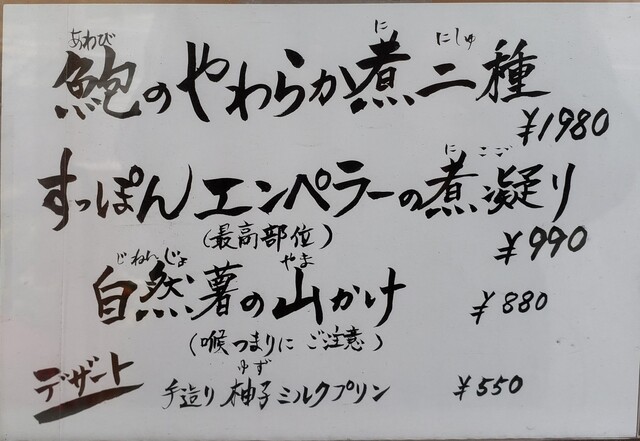 あわび に にしゅ
鮑のやわらか煮二種
¥1980
にこご
すっぽんエンペラーの煮凝り
(最高部位)
¥990
じねんじょ やま
自然薯の山かけ
¥880
(喉つまりにご注意)
デザート
ゆず
手造り柚子ミルクプリン ¥550